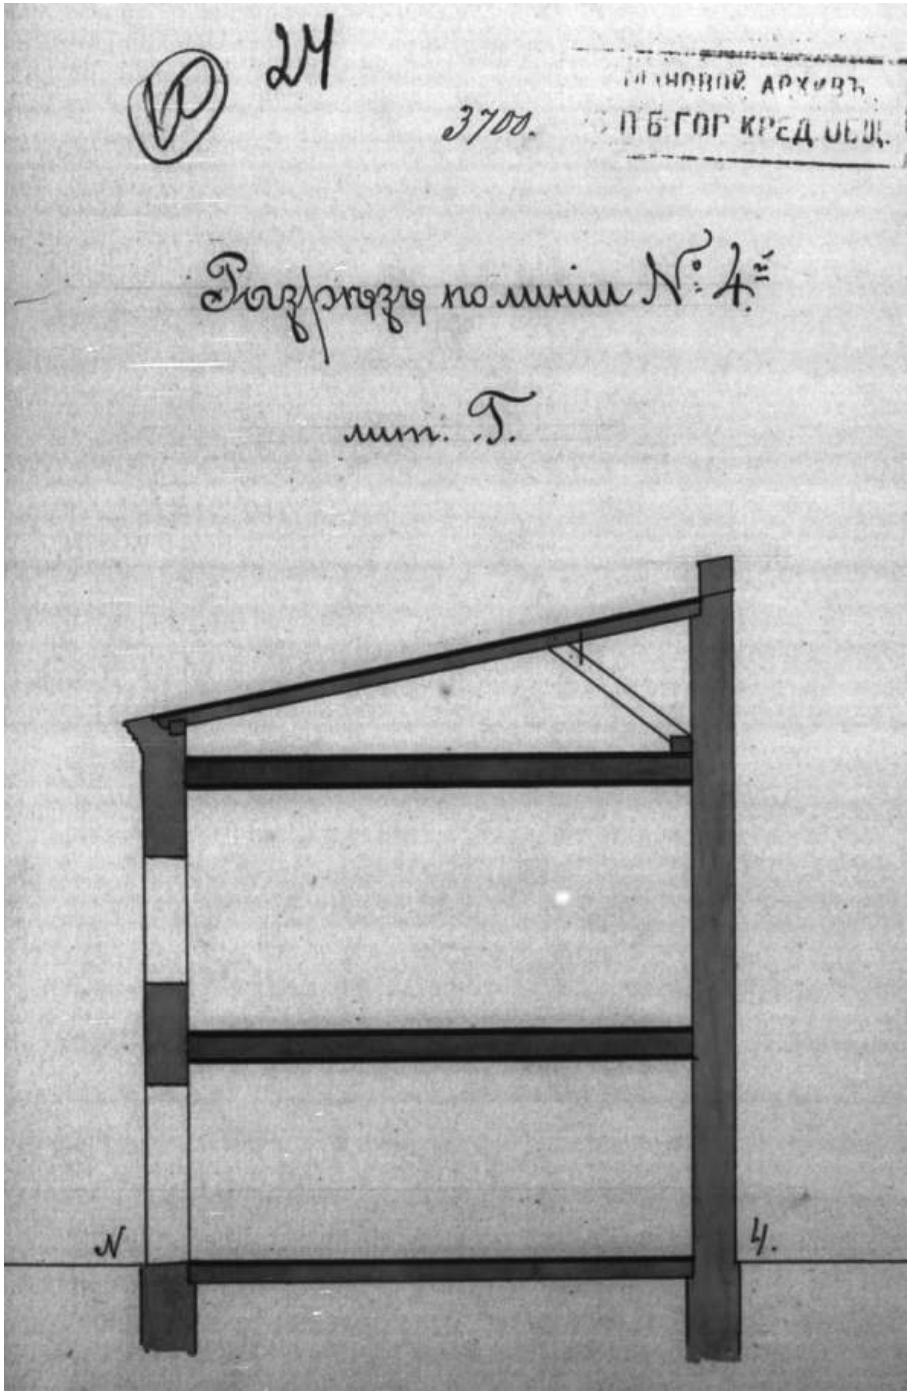 24
3700.
АРХИВЪ
П Б ГОР КРЕД ОБЩ.
Разрѣзъ по линіи № 4й
лит. Г.
N
4.